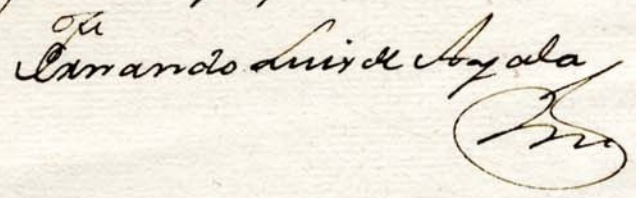 Fernando Luis de Ayala